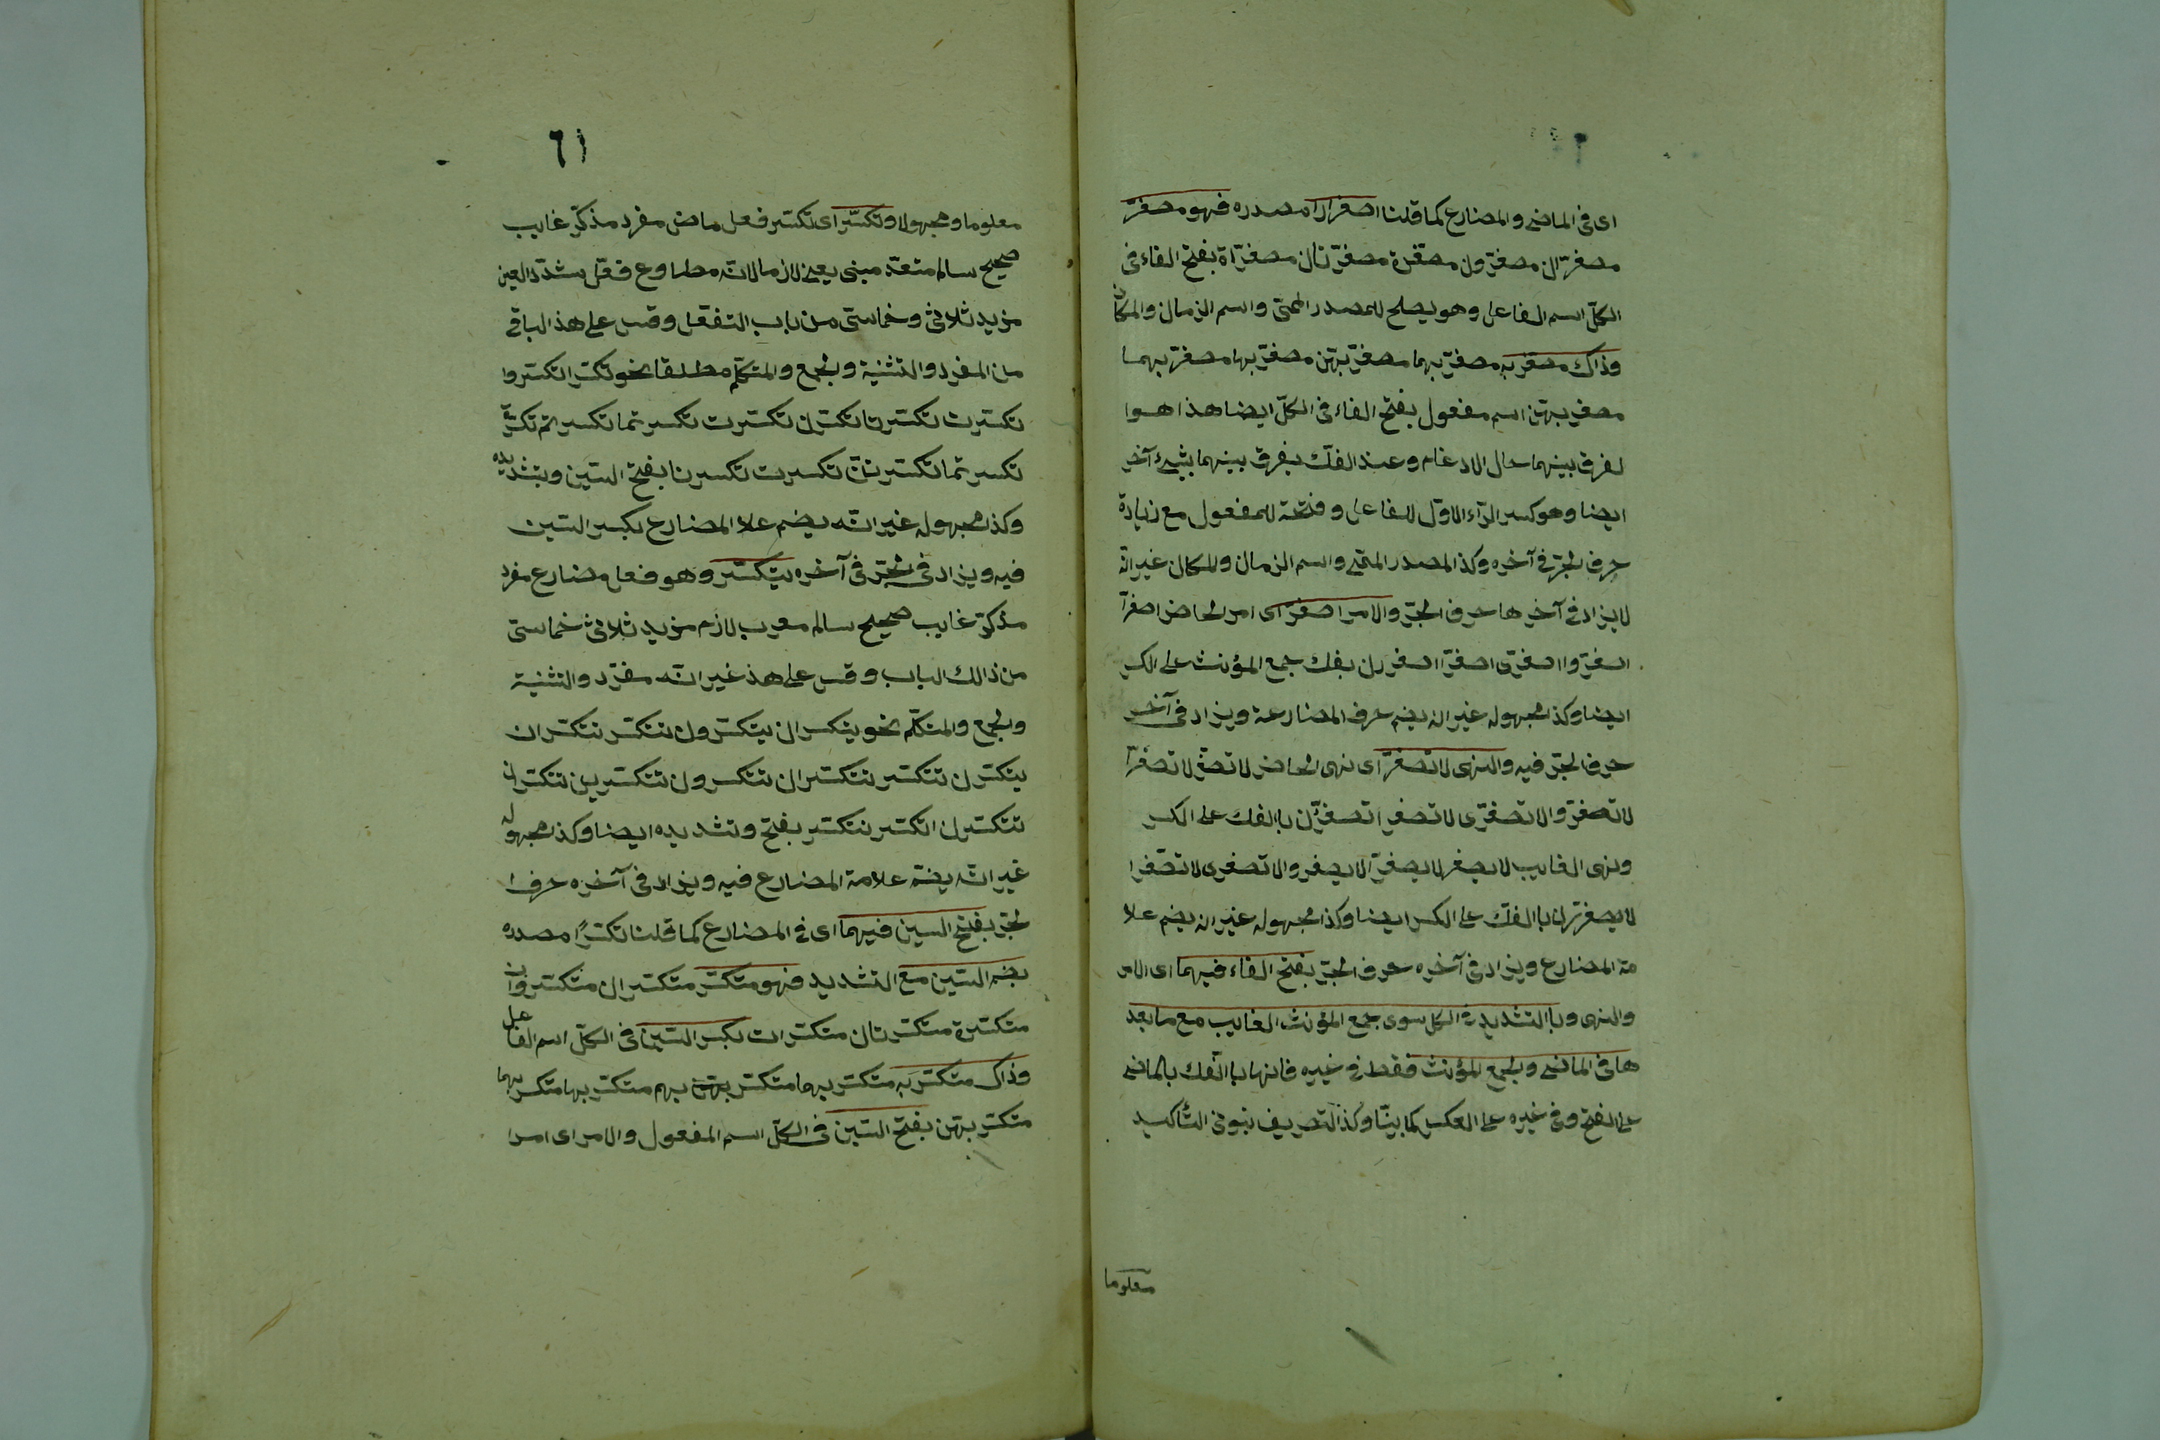 اى فى الماضى والمضارع كما قلنا اصفرارا مصدره فهو مصفرّ
مصفرّان مصفرّون مصفرّة مصفرّتان مصفرّاة بفتح الفاء فى
الكلّ اسم الفاعل وهو يصلح للمصدر الميمى واسم الزمان والمكان
وذاك مصفرّ به مصفرّ بهما مصفرّ بهن مصفرّ بها مصفرّ بهما
مصفرّ بهن اسم مفعول بفتح الفاء فى الكلّ ايضا هذا هوا
لفرق بينهما حال الادغام وعند الفك بفرق بينهما بشىء آخر
ايضا وهو كسر الرّاء الاوّل للفاعل وفتحة للمفعول مع زيادة
حرف الجرّ فى آخره وكذا المصدر الميمى واسم الزمان والمكان غير انّه
لا يزاد فى آخرها حرف الجرّ والامر اصفرّ اى امر الحاضر اصفرّا
اصفرّوا اصفرّى اصفرّا اصفررن بفك جمع المؤنث على الكسر
ايضا وكذا مجهوله غير انه يضم حرف المضارعة ويزاد فى آخر
حرف الجرّ فيه والنهى لا تصفرّ اى نهى الحاضر لا تصفرّ لا تصفرّا
لا تصفرّوا لا تصفرّى لا تصفرا تصفررن باالفك على الكسر
ونهى الغايب لا يصفر لا يصفرّا لا يصفروا لا تصفرى لا تصفرا
لا يصفررن باالفكّ على الكسر ايضا وكذا مجهوله غير انه يضم علا
مة المضارع ويزاد فى آخره حرف الجرّ بفتح الفاء فيهما اى الامر
والنهى وباالتشديد فى الكل سوى جمع المؤنث الغايب مع ما بعد
ها فى الماضى والجمع المؤنث فقط فى غيره فانها باالفك باالماضى
على الفتح وفى غيره على العكس كما بيّنا وكذا التصريف بنونى التأكيد
معلوما
٦١
معلوما ومجهولا وتكسّر اى تكسّر فعل ماض مفرد مذكر غايب
صحيح سالم متعد مبنى يعنى لازما لانّه مطاوع فعّل بشدّة العين
مزيد ثلاثى وخماسى من باب التفعّل وقس على هذا الباقى
من المفرد والتثنية والجمع والمتكلّم مطلقا نحو تكسّرا تكسّروا
تكسّرت تكسّرتا تكسّرن تكسّرت تكسّرتما تكسّرتم تكسّرت
تكسّرتما تكسّرتنّ تكسّرت تكسّرنا بفتح السّين وبتشديده
وكذا مجهوله غير انّه يضم علا المضارع بكسر السّين
فيه ويزاد فى الجرّ فى آخره يتكسّر وهو فعل مضارع مفرد
مذكر غايب صحيح سالم معرب لازم مزيد ثلاثى خماسى
من ذالك الباب وقس على هذ غير انّه مفرد والتثنية
والجمع والمتكلّم نحو يتكسران يتكسّرون تتكسّر تتكسّران
يتكسّرن تتكسّر تتكسّران تتكسّرون تتكسّرين تتكسّران
تتكسّرن اتكسّر نتكسّر بفتح وتشديده ايضا وكذا مجهوله
غير انّه يضمّ علامة المضارع فيه ويزاد فى آخره حرف ا
لجرّ بفتح السين فيهما اى فى المضارع كما قلنا تكسّرًا مصدره
بضم السّين مع التشديد فهو متكسّر متكسّران متكسّرون
متكسّرة متكسّرتان متكسّرات بكسر السّين فى الكلّ اسم الفاعل
وذاك متكسّر به متكسّر بهما متكسّر بهم متكسّر بها متكسّر بهما
متكسّر بهن بفتح السّين فى الكلّ اسم المفعول والامر اى امرا